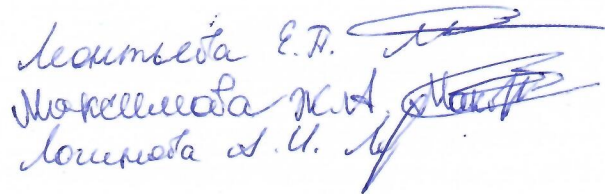 Леонтьева Е.П.
Максимова Ж.А.
Логинова А.И.